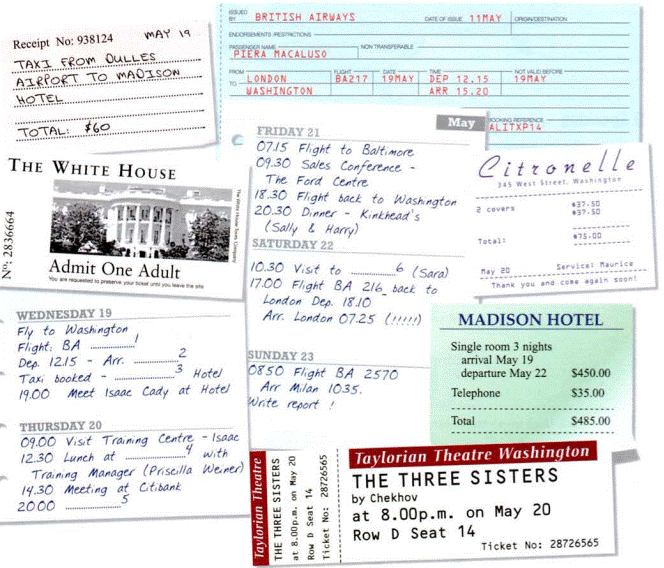 Receipt No: 938124 MAY 19
TAXI FROM DULLES
AIRPORT TO MADISON
HOTEL
TOTAL: $60
ISSUED BY BRITISH AIRWAYS DATE OF ISSUE 11MAY ORIGIN/DESTINATION
ENDORSEMENTS /RESTRICTIONS
PASSENGER NAME NON TRANSFERABLE
PIERA MACALUSO
FROM FLIGHT DATE TIME NOT VALID BEFORE
LONDON BA217 19MAY DEP 12.15 19MAY
TO WASHINGTON ARR 15.20
BOOKING REFERENCE
ALITXP14
THE WHITE HOUSE
Nº: 2836664
Admit One Adult
You are requested to preserve your ticket until you leave the site
May
FRIDAY 21
07.15 Flight to Baltimore
09.30 Sales Conference -
The Ford Centre
18.30 Flight back to Washington
20.30 Dinner - Kinkhead's
(Sally & Harry)
SATURDAY 22
10.30 Visit to ............6 (Sara)
17.00 Flight BA 216 back to
London Dep. 18.10
Arr. London 07.25 (!!!!!)
SUNDAY 23
0850 Flight BA 2570
Arr Milan 1035.
Write report !
Citronelle
345 West Street, Washington
2 covers $37.50
$37.50
Total: $75.00
May 20 Service: Maurice
Thank you and come again soon!
WEDNESDAY 19
Fly to Washington
Flight: BA ............1
Dep. 12.15 - Arr. ............2
Taxi booked - ............3 Hotel
19.00 Meet Isaac Cady at Hotel
THURSDAY 20
09.00 Visit Training Centre - Isaac
12.30 Lunch at ............4 with
Training Manager (Priscilla Weiner)
14.30 Meeting at Citibank
2000 ............5
MADISON HOTEL
Single room 3 nights
arrival May 19
departure May 22 $450.00
Telephone $35.00
Total $485.00
Taylorian Theatre
THE THREE SISTERS
at 8.00p.m. on May 20
Row D Seat 14
Ticket No: 28726565
Taylorian Theatre Washington
THE THREE SISTERS
by Chekhov
at 8.00p.m. on May 20
Row D Seat 14
Ticket No: 28726565